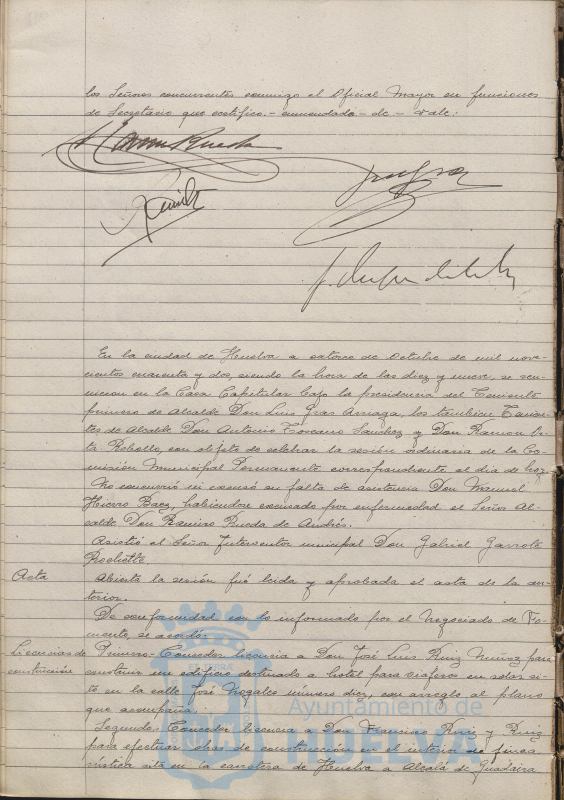 los Señores concurrentes conmigo el Oficial Mayor en funciones
de Secretario que certifico.- enmendado - de - vale:
En la ciudad de Huelva a catorce de Octubre de mil nove-
cientos cuarenta y dos, siendo la hora de las diez y nueve, se reu-
nieron en la Casa Capitular bajo la presidencia del Teniente
primero de Alcalde Don Luis Gras Arriaga, los también Tenien-
tes de Alcalde Don Antonio Toscano Sanchez y Don Ramon
Rebollo, con objeto de celebrar la sesión ordinaria de la Co-
misión Municipal Permanente correspondiente al dia de hoy
No concurrió ni excusó su falta de asistencia Don Manuel
Hierro Baez, habiendose excusado por enfermedad el Señor Al-
calde Don Ramiro Rueda de Andrés.
Asistió el Señor Interventor municipal Don Gabriel Garrote
Acta
Abierta la sesión fué leida y aprobada el acta de la an-
terior.
De conformidad con lo informado por el Negociado de Fo-
mento, se acordó:
Licencias de
construcción
Primero- Conceder licencia a Don José Luis Ruiz Muñoz para
construir un edificio destinado a hotel para viajeros en solar si-
to en la calle José Nogales número diez, con arreglo al plano
que acompaña.
Segundo- Conceder licencia a Don Francisco Ruiz y Ruiz
para efectuar obras de construcción en el interior de finca
rústica sita en la carretera de Huelva a Alcalá de Guadaira
Ayuntamiento de
HUELVA